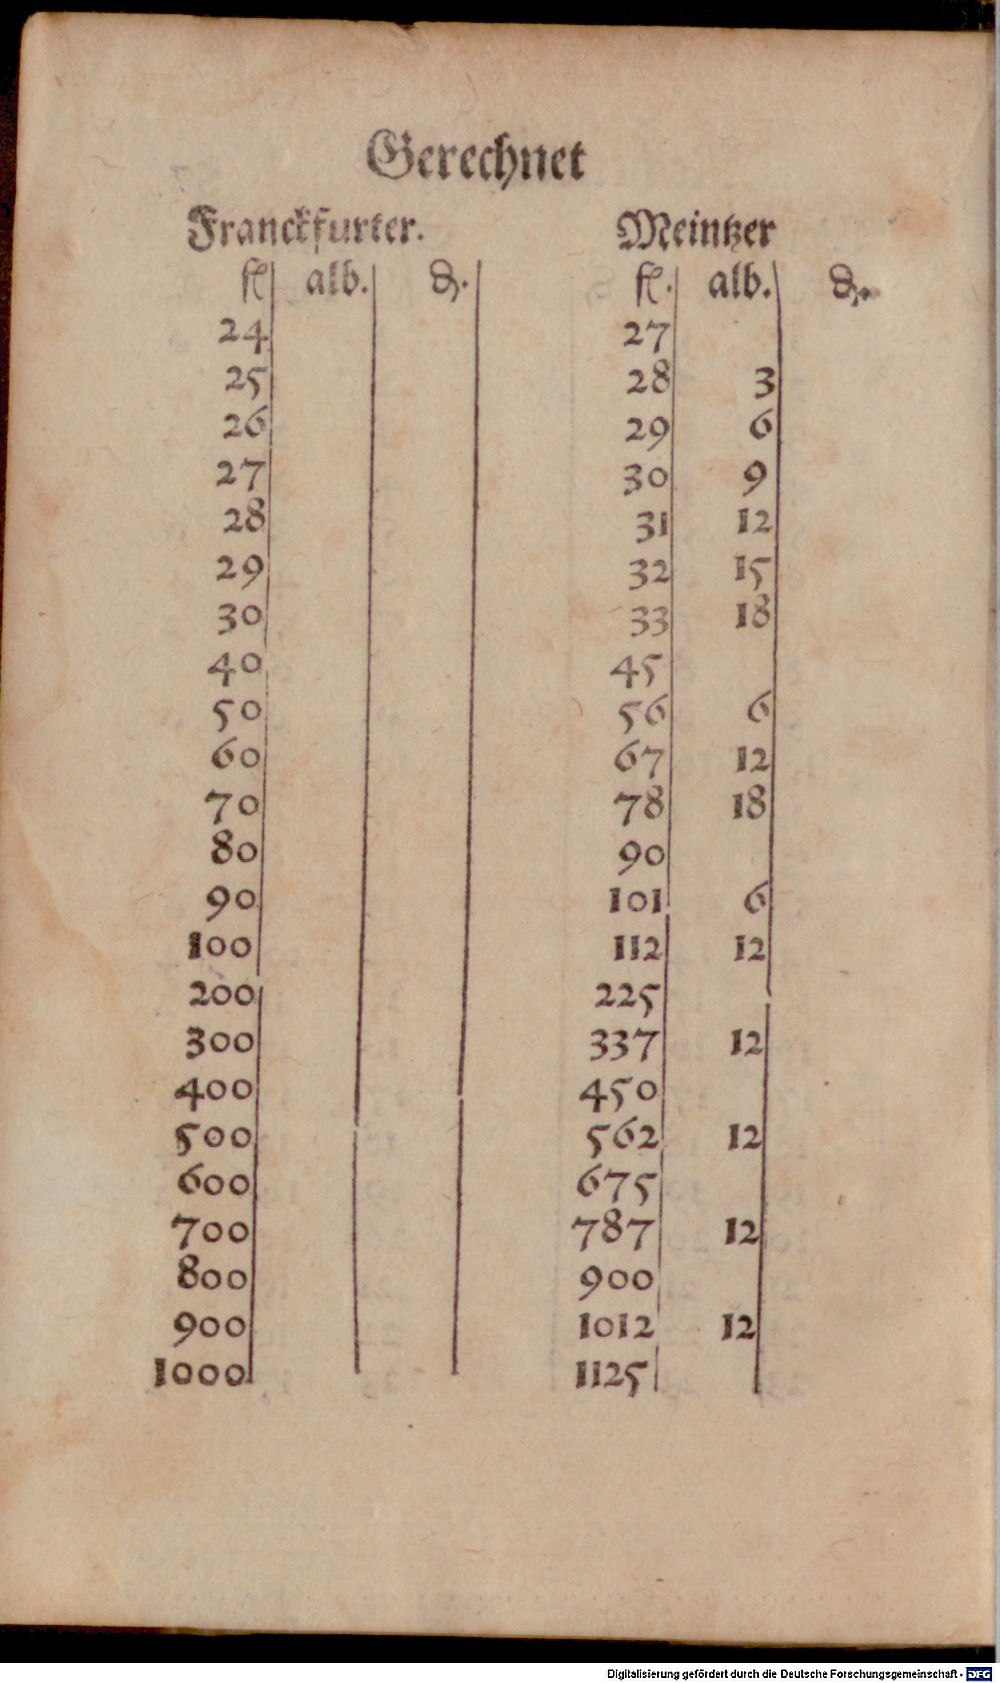 Gerechnet
Franckfurter. Meintzer
fl alb. ₰. fl. alb. ₰.
24 27
25 28 3
26 29 6
27 30 9
28 31 12
29 32 15
30 33 18
40 45
50 56 6
60 67 12
70 78 18
80 90
90 101 6
100 112 12
200 225
300 337 12
400 450
500 562 12
600 675
700 787 12
800 900
900 1012 12
1000 1125
Digitalisierung gefördert durch die Deutsche Forschungsgemeinschaft - DFG